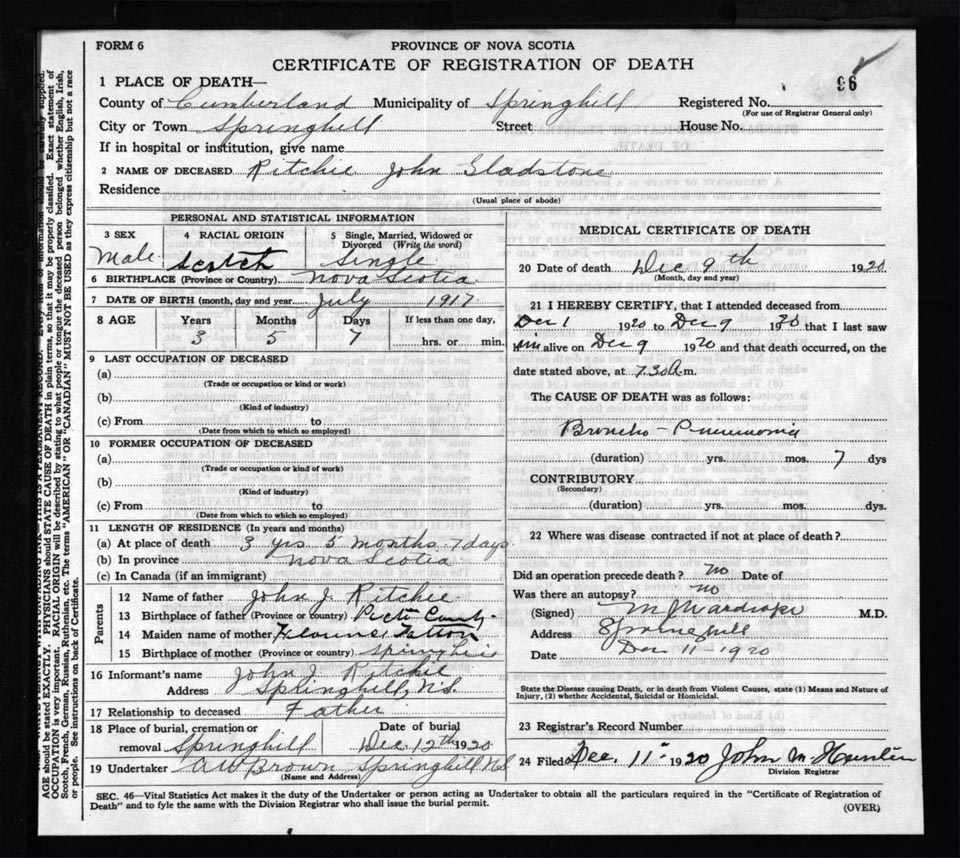 FORM 6
PROVINCE OF NOVA SCOTIA
CERTIFICATE OF REGISTRATION OF DEATH
96
1 PLACE OF DEATH—
County of Cumberland Municipality of Springhill Registered No.
(For use of Registrar General only)
City or Town Springhill Street House No.
If in hospital or institution, give name
2 NAME OF DECEASED Ritchie John Gladstone
Residence
(Usual place of abode)
PERSONAL AND STATISTICAL INFORMATION
3 SEX
Male
4 RACIAL ORIGIN
Scotch
5 Single, Married, Widowed or Divorced (Write the word)
Single
6 BIRTHPLACE (Province or Country) Nova Scotia
7 DATE OF BIRTH (month, day and year July 1917
8 AGE Years Months Days If less than one day,
3 5 7 hrs. or min.
9 LAST OCCUPATION OF DECEASED
(a)
(Trade or occupation or kind or work)
(b)
(Kind of industry)
(c) From to
(Date from which to which so employed)
10 FORMER OCCUPATION OF DECEASED
(a)
(Trade or occupation or kind of work)
(b)
(Kind of industry)
(c) From to
(Date from which to which so employed)
11 LENGTH OF RESIDENCE (In years and months)
(a) At place of death 3 yrs 5 months 7 days
(b) In province Nova Scotia
(c) In Canada (if an immigrant)
Parents
12 Name of father John J. Ritchie
13 Birthplace of father (Province or country) Picto County
14 Maiden name of mother
15 Birthplace of mother (Province or country)
16 Informant's name John J. Ritchie
Address Springhill, N.S.
17 Relationship to deceased Father
18 Place of burial, cremation or removal Springhill
Date of burial
Dec 12th 1920
19 Undertaker A W Brown Springhill N.S
(Name and Address)
MEDICAL CERTIFICATE OF DEATH
20 Date of death Dec 9th 1920
(Month, day and year)
21 I HEREBY CERTIFY, that I attended deceased from
Dec 1 1920 to Dec 9 1920 that I last saw
him alive on Dec 9 1920 and that death occurred, on the
date stated above, at 7.30 A.m.
The CAUSE OF DEATH was as follows:
Broncho-Pneumonia
(duration) yrs. mos. 7 dys
CONTRIBUTORY
(Secondary)
(duration) yrs. mos. dys.
22 Where was disease contracted if not at place of death?
Did an operation precede death? no Date of
Was there an autopsy? no
(Signed) M.D.
Address Springhill
Date Dec 11-1920
State the Disease causing Death, or in death from Violent Causes, state (1) Means and Nature of
Injury, (2) whether Accidental, Suicidal or Homicidal.
23 Registrar's Record Number
24 Filed Dec. 11 1920 John M Hunter
Division Registrar
SEC. 46—Vital Statistics Act makes it the duty of the Undertaker or person acting as Undertaker to obtain all the particulars required in the "Certificate of Registration of
Death" and to fyle the same with the Division Registrar who shall issue the burial permit.
(OVER)
AGE should be stated EXACTLY. PHYSICIANS should STATE CAUSE OF DEATH in plain terms, so that it may be properly classified. Exact statement of
OCCUPATION is very important. RACIAL ORIGIN will be described by stating to what people or tongue the deceased person belonged whether English, Irish,
Scotch, French, German, Russian, Ruthenian, etc. The terms "AMERICAN" OR "CANADIAN" MUST NOT BE USED as they express citizenship but not a race
or people. See instructions on back of Certificate.